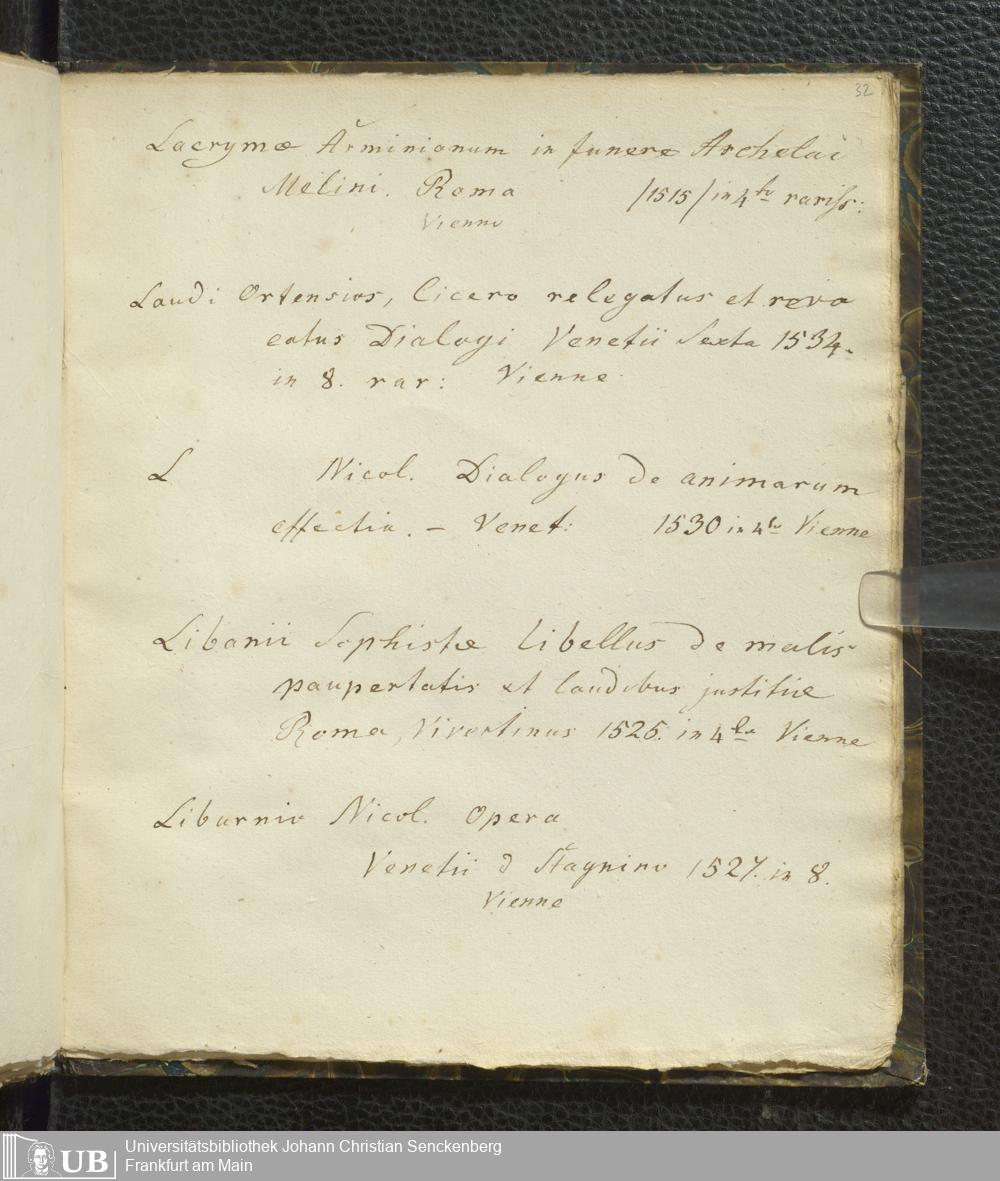 32
Lacrymæ Arminianum in funere Archelai
Melini. Roma /1515/ in 4to rariss:
Vienno
Laudi Ortensius, Cicero relegatus et revo
catus Dialogi Venetii Sexta 1534.
in 8. rar: Vienne
L Nicol. Dialogus de animarum
effectiu. – Venet: 1530 in 4to Vienne
Libanii Sophistæ libellus de malis
paupertatis et laudibus justitiæ
Roma, 1525. in 4to Vienne
Liburnio Nicol. Opera
Venetii d Stagnino 1527. in 8.
Vienne
UB
Universitätsbibliothek Johann Christian Senckenberg
Frankfurt am Main